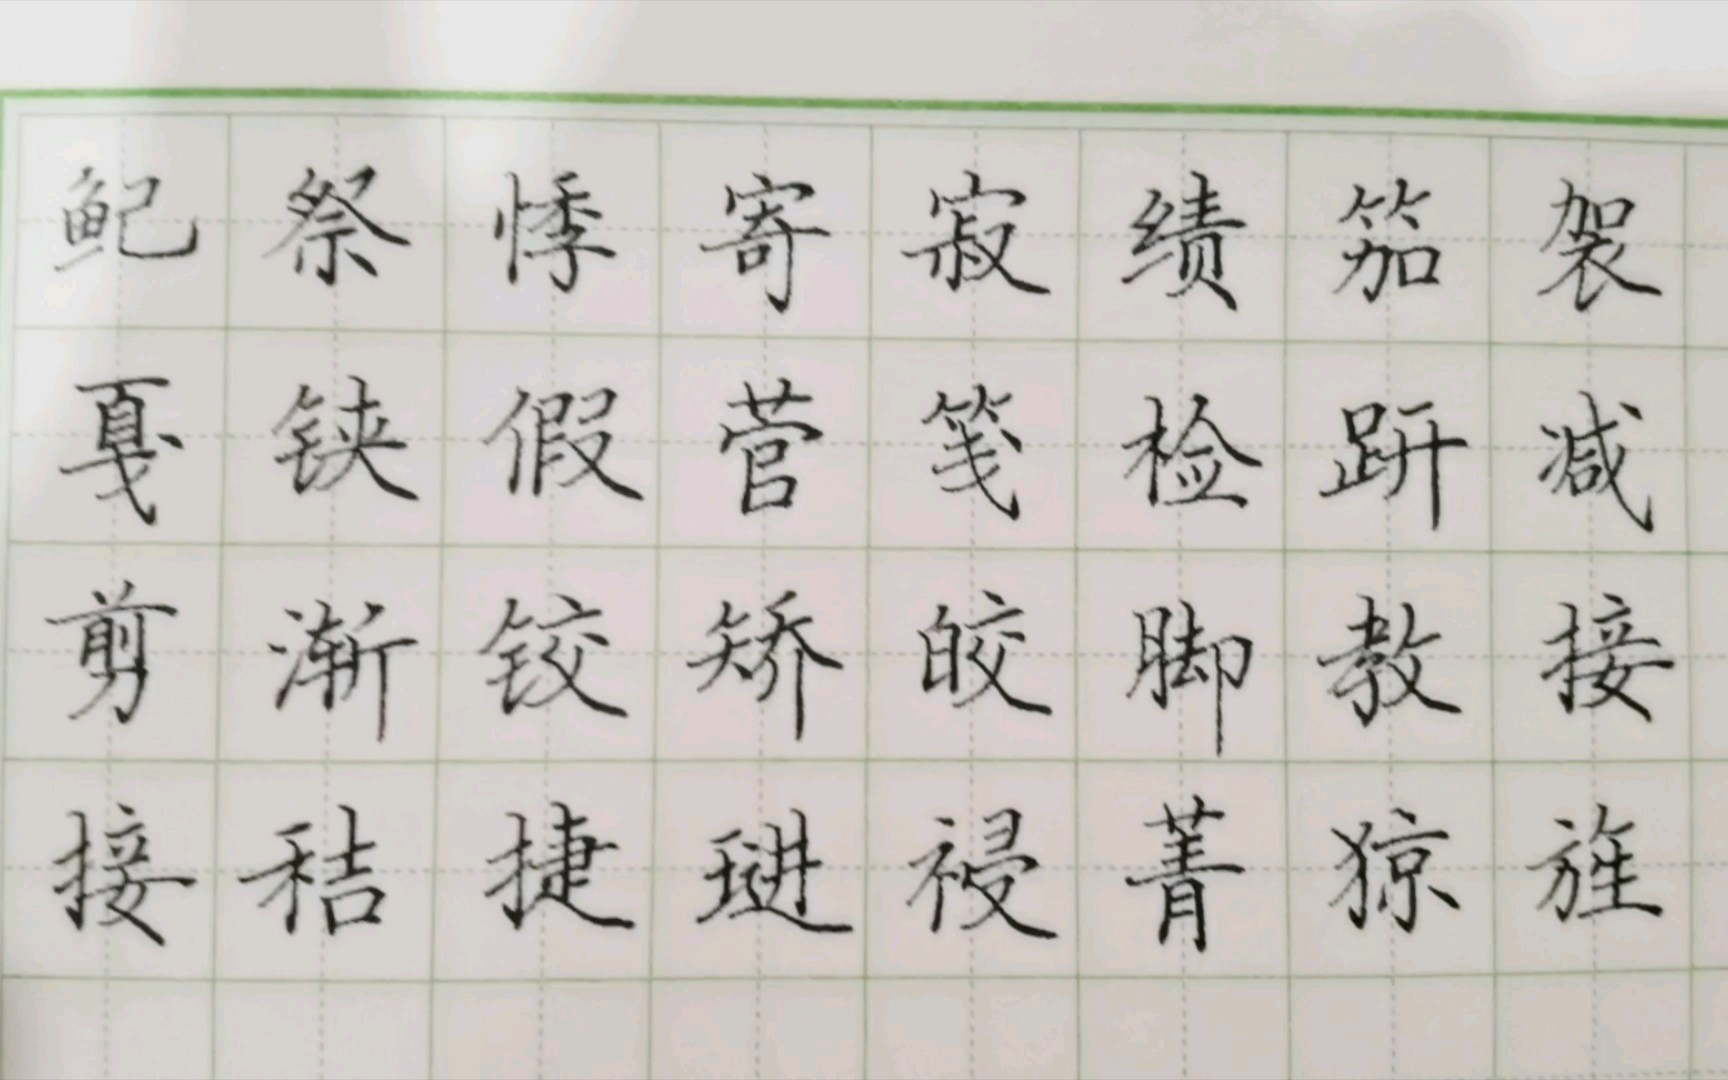 鱾祭悸寄寂绩笳袈
戛铗假菅笺检趼减
剪渐铰矫皎脚教接
接秸捷琎祲菁猄旌